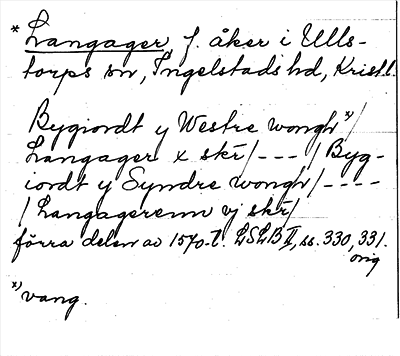 * Langager, f. åker i Ulls-
torps sn, Ingelstads hd, Kristl.
Bygiordt y Westre wongh *)/
Langager x skr/ --- / Byg-
iordt y Syndre wongh/ ----
/ Langagerenn vj skr/
förra delen av 1570-t. LSLB II, ss. 330, 331.
orig
*) vang.